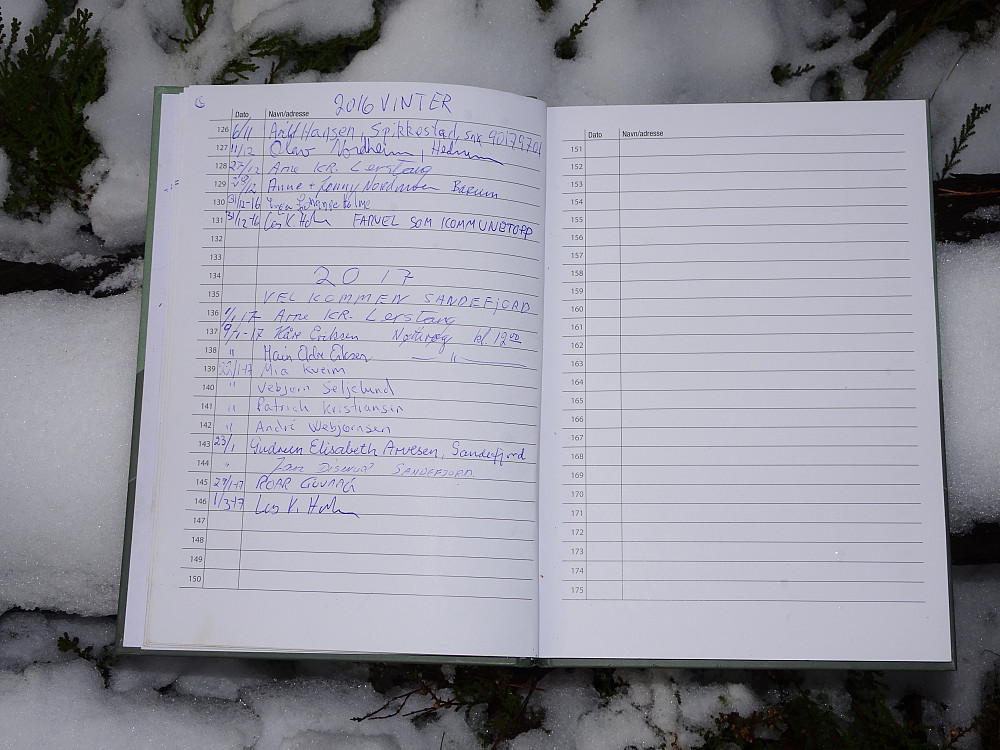 2016 VINTER
Dato Navn/adresse
126 6/11 Arild Hansen, Spikkestad,
127 11/12 Olav Nordheim, Hedrum
128 27/12 Arne KR. Lerstang
129 /12 Anne + Jenny Nordmoen Bærum
130 31/12-16 Holme
131 31/12-16 K. Holm FARVEL SOM KOMMUNETOPP
132
133
134 2017
135 VELKOMMEN SANDEFJORD
136 1/1-17 Arne KR. Lerstang
137 9/1-17 Kåre Eriksen kl. 12 00
138 " Eriksen "
139 22/1-17 Mia Kveim
140 " Vebjørn Seljelund
141 " Patrick Kristiansen
142 " André Webjørnsen
143 23/1 Gudrun Elisabeth Arvesen, Sandefjord
144 " SANDEFJORD
145 29/1-17 ROAR
146 1/3-17 K. Holm
147
148
149
150
Dato Navn/adresse
151
152
153
154
155
156
157
158
159
160
161
162
163
164
165
166
167
168
169
170
171
172
173
174
175